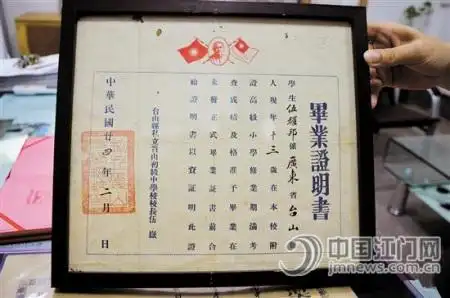 畢業證明書
學生伍耀邦係廣東省台山
人現年十三歲在本校附
設高級小學修業期滿考
查成績及格准予畢業在
未發正式畢業証書前合
給證明書以資証明此證
台山縣私立山初級中學校校長伍
中華民國廿四年二月日
中国江门网
jmnews.com.cn